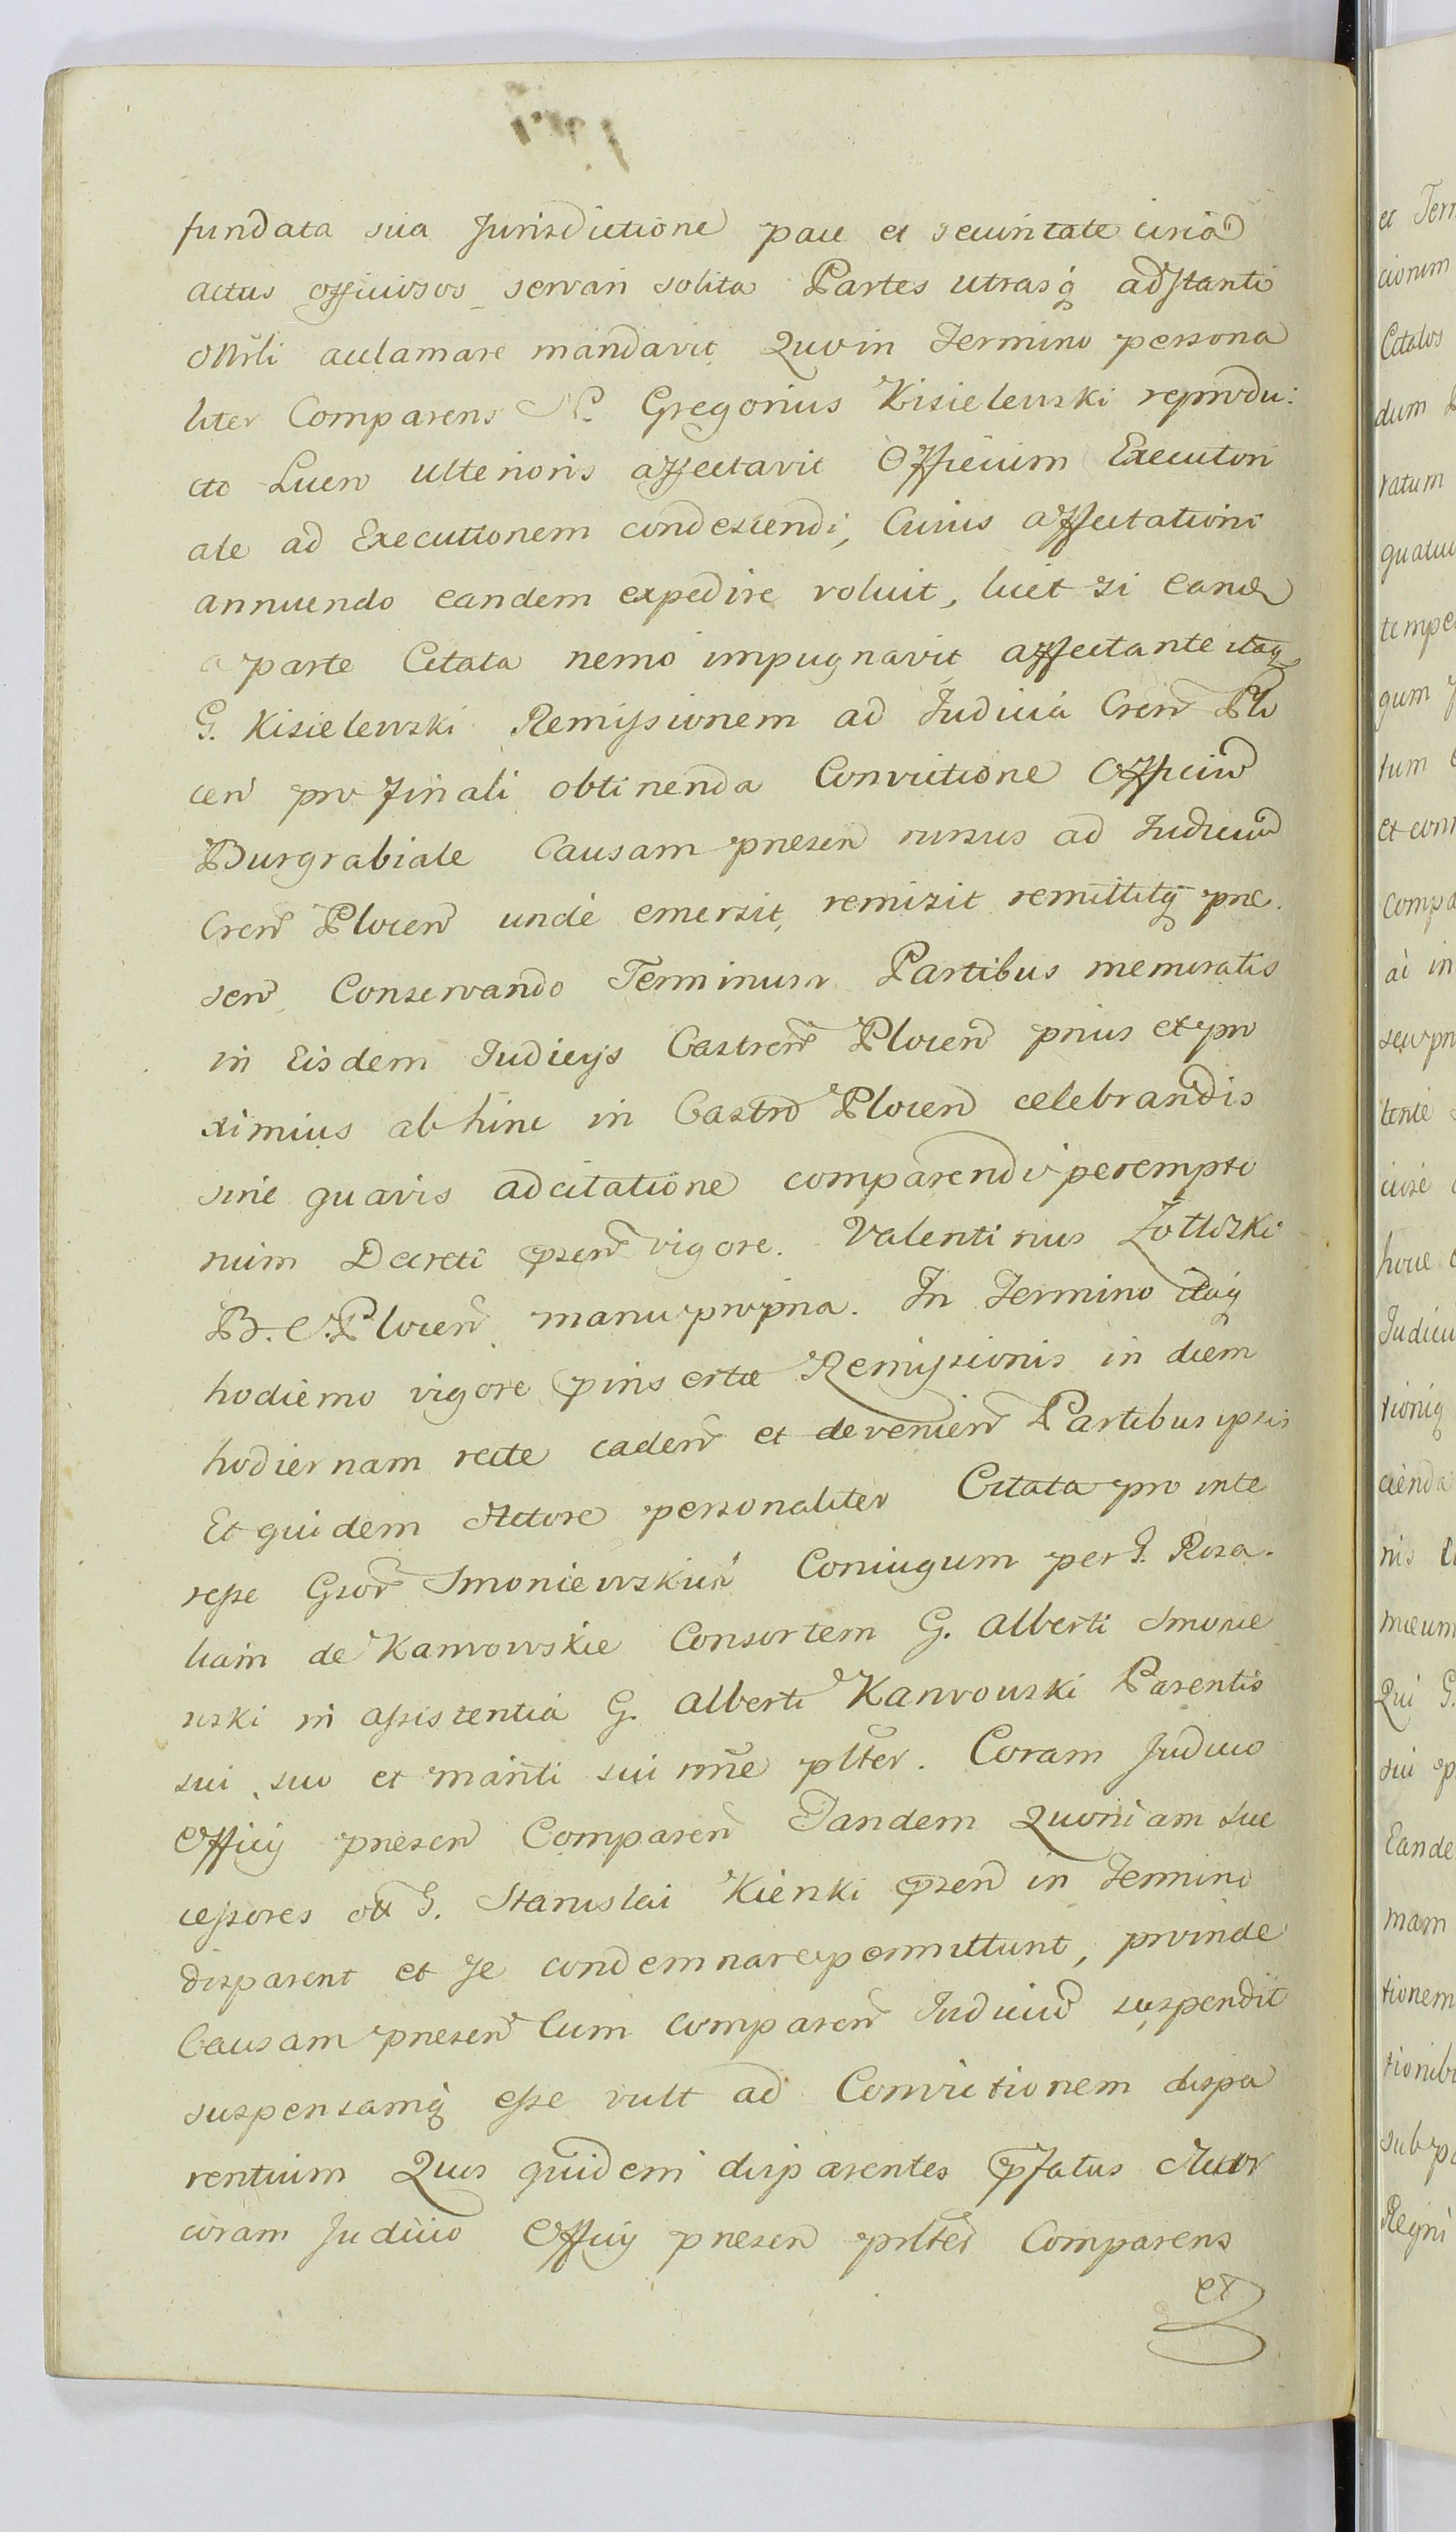 fundata sua Jurisdictione pace et securitate circa
actus officiosos servari solita Partes utrasq adstanti
Mrli acclamare mandavit Quo in Termino persona
liter Comparens N. Gregorius Kisielewski reprodu:
cto Lucro ulterioris affectavit Officium Executori
ale ad Executionem condescendi, Cuius affectationi
annuendo eandem expedire voluit, licet si eand
a parte Citata nemo impugnavit affectante itaq
G. Kisielewski Remissionem ad Judicia Cren Plo
cen pro finali obtinenda Convictione Officiu
Burgrabiale Causam presen rursus ad Judiciu
Cren Plocen unde emersit, remisit remittitq pre.
sen, Conservando Terminum Partibus memoratis
in Eisdem Judicijs Castren Plocen prius et pro
ximius ab hinc in Castro Plocen celebrandis
sine quavis adcitatione comparendi perempto
rium Decreti psen vigore. Valentinus Żołtoski
B. C. Plocen manu propria. In Termino itaq
hodierno vigore pinsertæ Remissionis in diem
hodiernam recte caden et devenien Partibus ipsis
Et quidem Actore personaliter Citata pro inte
resse Gsor Smoniewskich Coniugum per G. Rosa.
liam de Kanrowskie Consortem G. Alberti Smonie
wski in assistentia G. Alberti Kanrowski Parentis
sui suo et mariti sui noe plter. Coram Judicio
Officij presen Comparen Tandem Quoniam suc
cessores olt G. Stanislai Kienki psen in Termino
disparent et se condemnare permittunt, proinde
Causam presen Cum comparen Judiciu suspendit
suspensamq esse vult ad Convictionem dispa
rentium Quos quidem disparentes pfatus Actor
coram Judicio Officij presen prlter Comparens
et